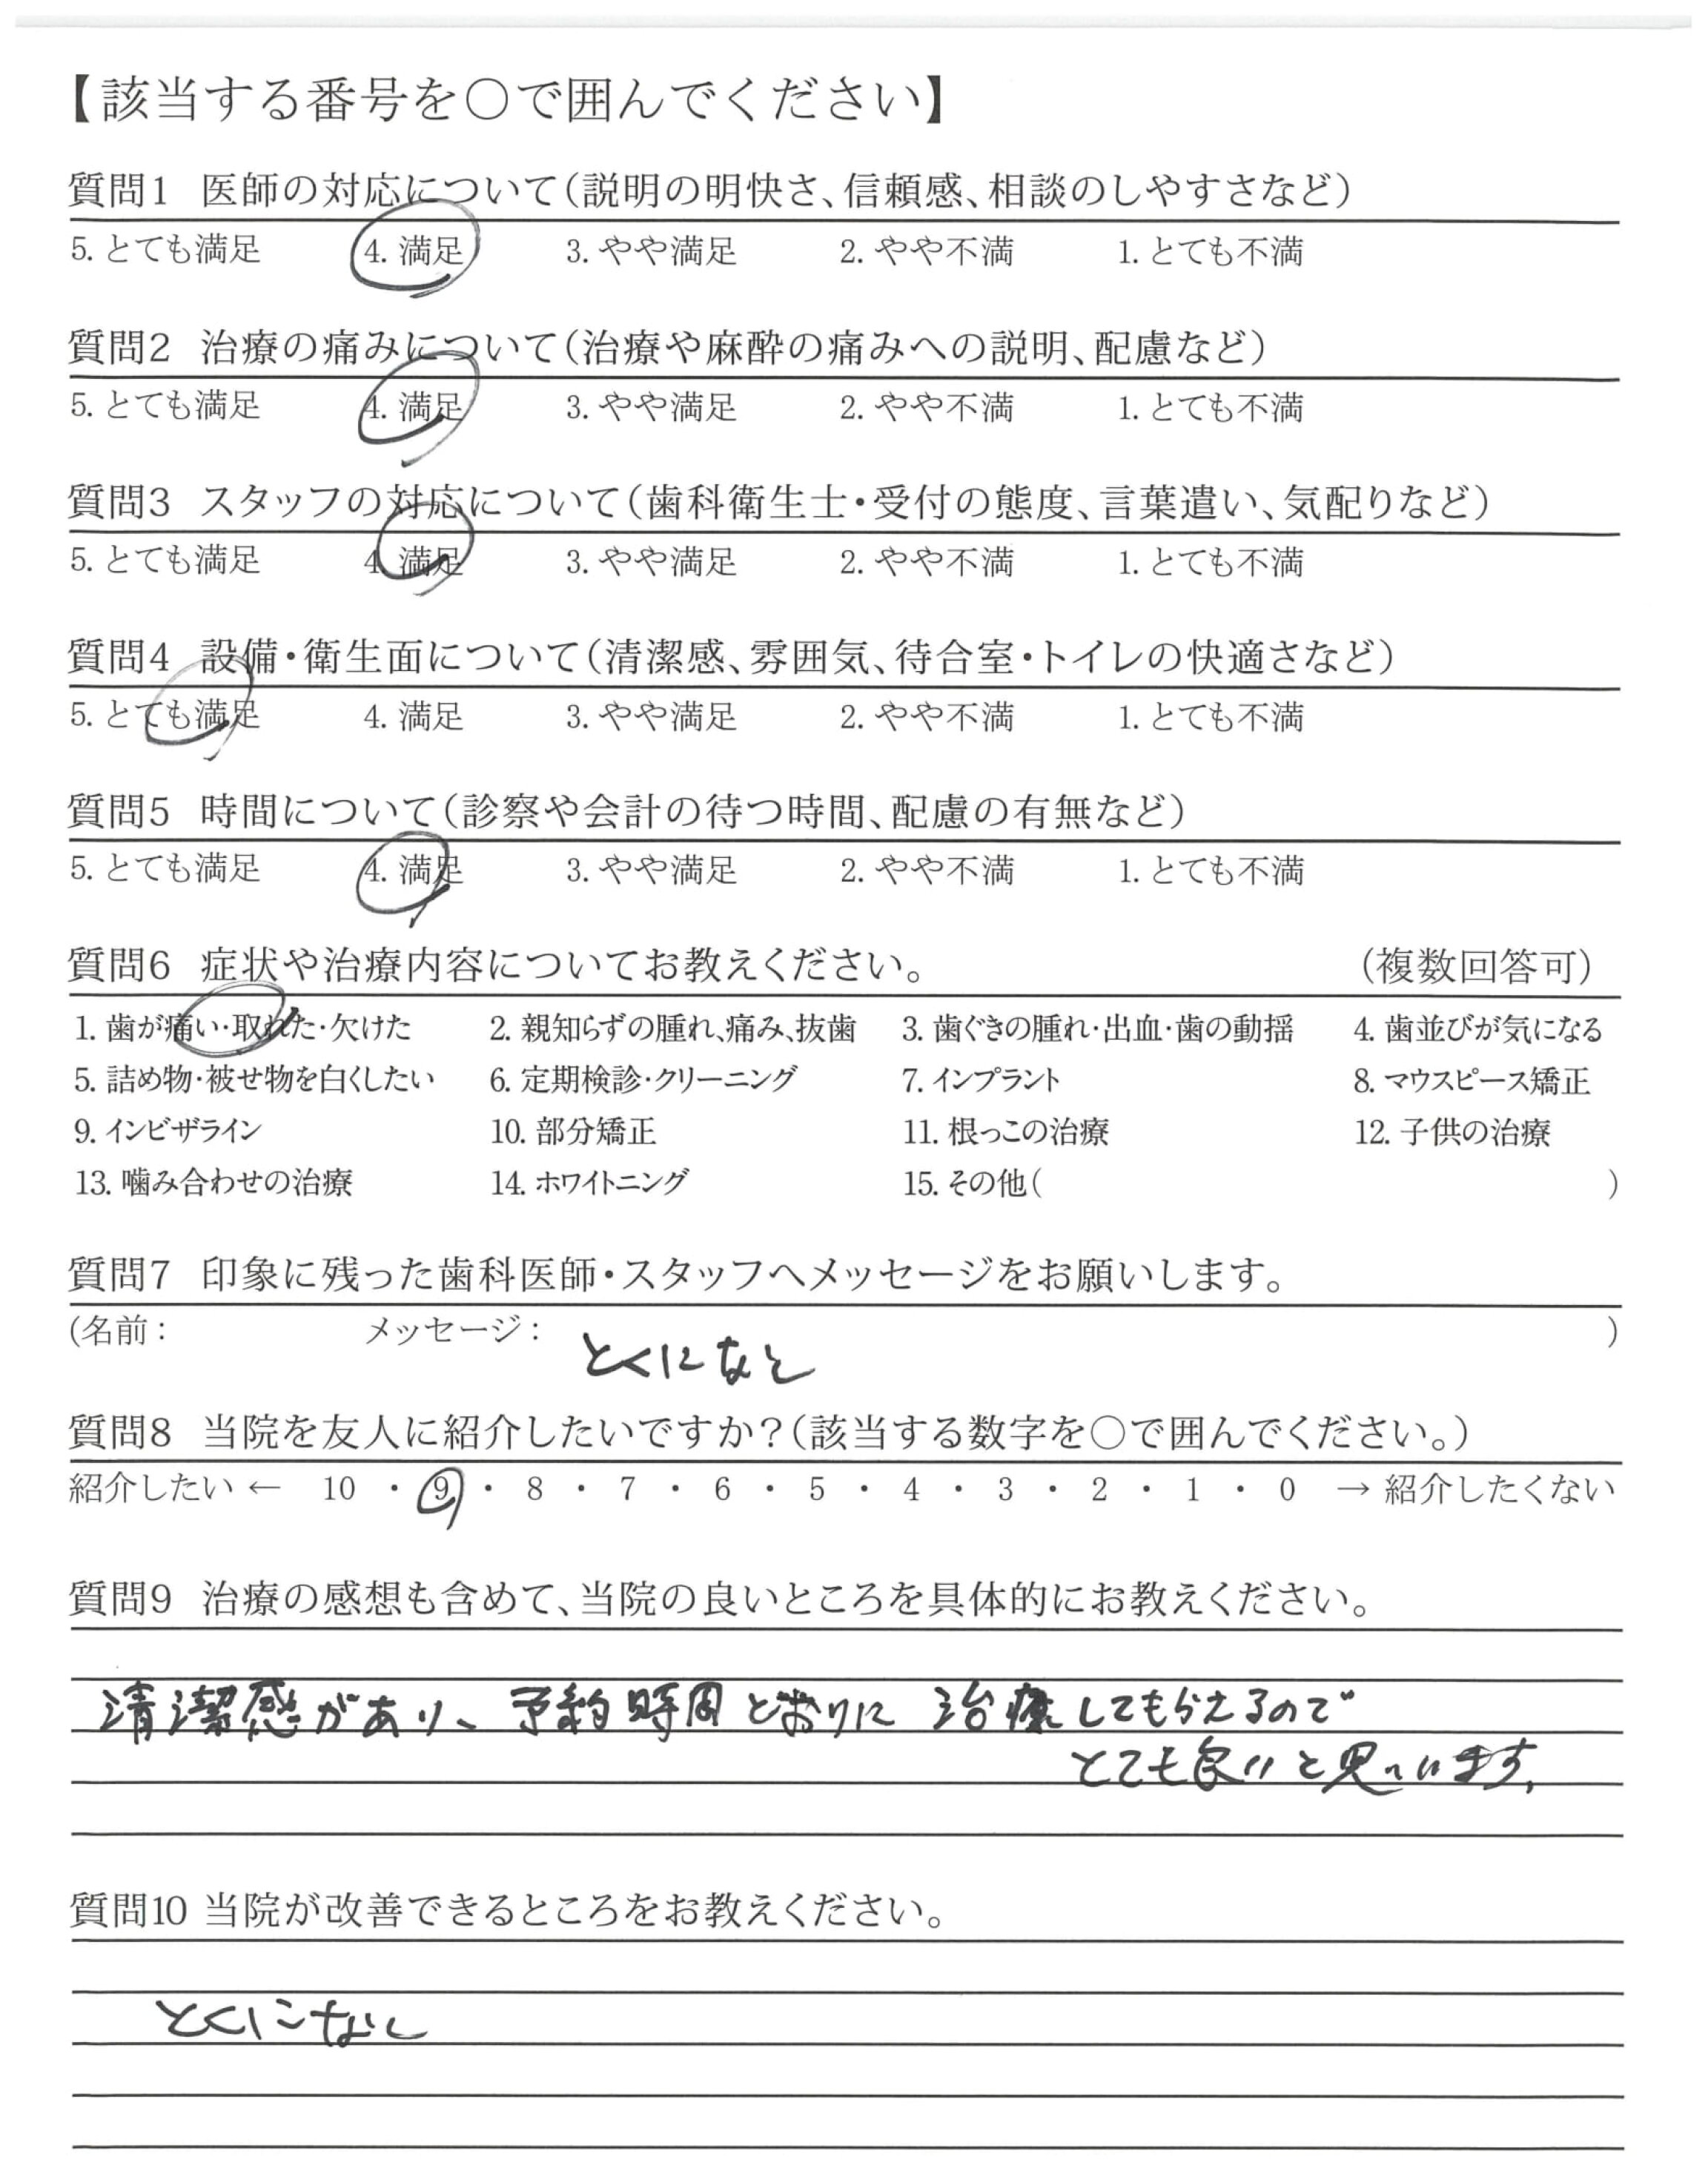 【該当する番号を〇で囲んでください】
質問1 医師の対応について(説明の明快さ、信頼感、相談のしやすさなど)
5. とても満足 4. 満足 3. やや満足 2. やや不満 1. とても不満
質問2 治療の痛みについて(治療や麻酔の痛みへの説明、配慮など)
5. とても満足 4. 満足 3. やや満足 2. やや不満 1. とても不満
質問3 スタッフの対応について(歯科衛生士・受付の態度、言葉遣い、気配りなど)
5. とても満足 4. 満足 3. やや満足 2. やや不満 1. とても不満
質問4 設備・衛生面について(清潔感、雰囲気、待合室・トイレの快適さなど)
5. とても満足 4. 満足 3. やや満足 2. やや不満 1. とても不満
質問5 時間について(診察や会計の待つ時間、配慮の有無など)
5. とても満足 4. 満足 3. やや満足 2. やや不満 1. とても不満
質問6 症状や治療内容についてお教えください。 (複数回答可)
1. 歯が痛い・取れた・欠けた 2. 親知らずの腫れ、痛み、抜歯 3. 歯ぐきの腫れ・出血・歯の動揺 4. 歯並びが気になる
5. 詰め物・被せ物を白くしたい 6. 定期検診・クリーニング 7. インプラント 8. マウスピース矯正
9. インビザライン 10. 部分矯正 11. 根っこの治療 12. 子供の治療
13. 噛み合わせの治療 14. ホワイトニング 15. その他( )
質問7 印象に残った歯科医師・スタッフへメッセージをお願いします。
(名前: メッセージ: とくになし )
質問8 当院を友人に紹介したいですか?(該当する数字を〇で囲んでください。)
紹介したい ← 10 ・ 9 ・ 8 ・ 7 ・ 6 ・ 5 ・ 4 ・ 3 ・ 2 ・ 1 ・ 0 → 紹介したくない
質問9 治療の感想も含めて、当院の良いところを具体的にお教えください。
清潔感があり、予約時間どおりに治療してもらえるので
とても良いと思います。
質問10 当院が改善できるところをお教えください。
とくになし